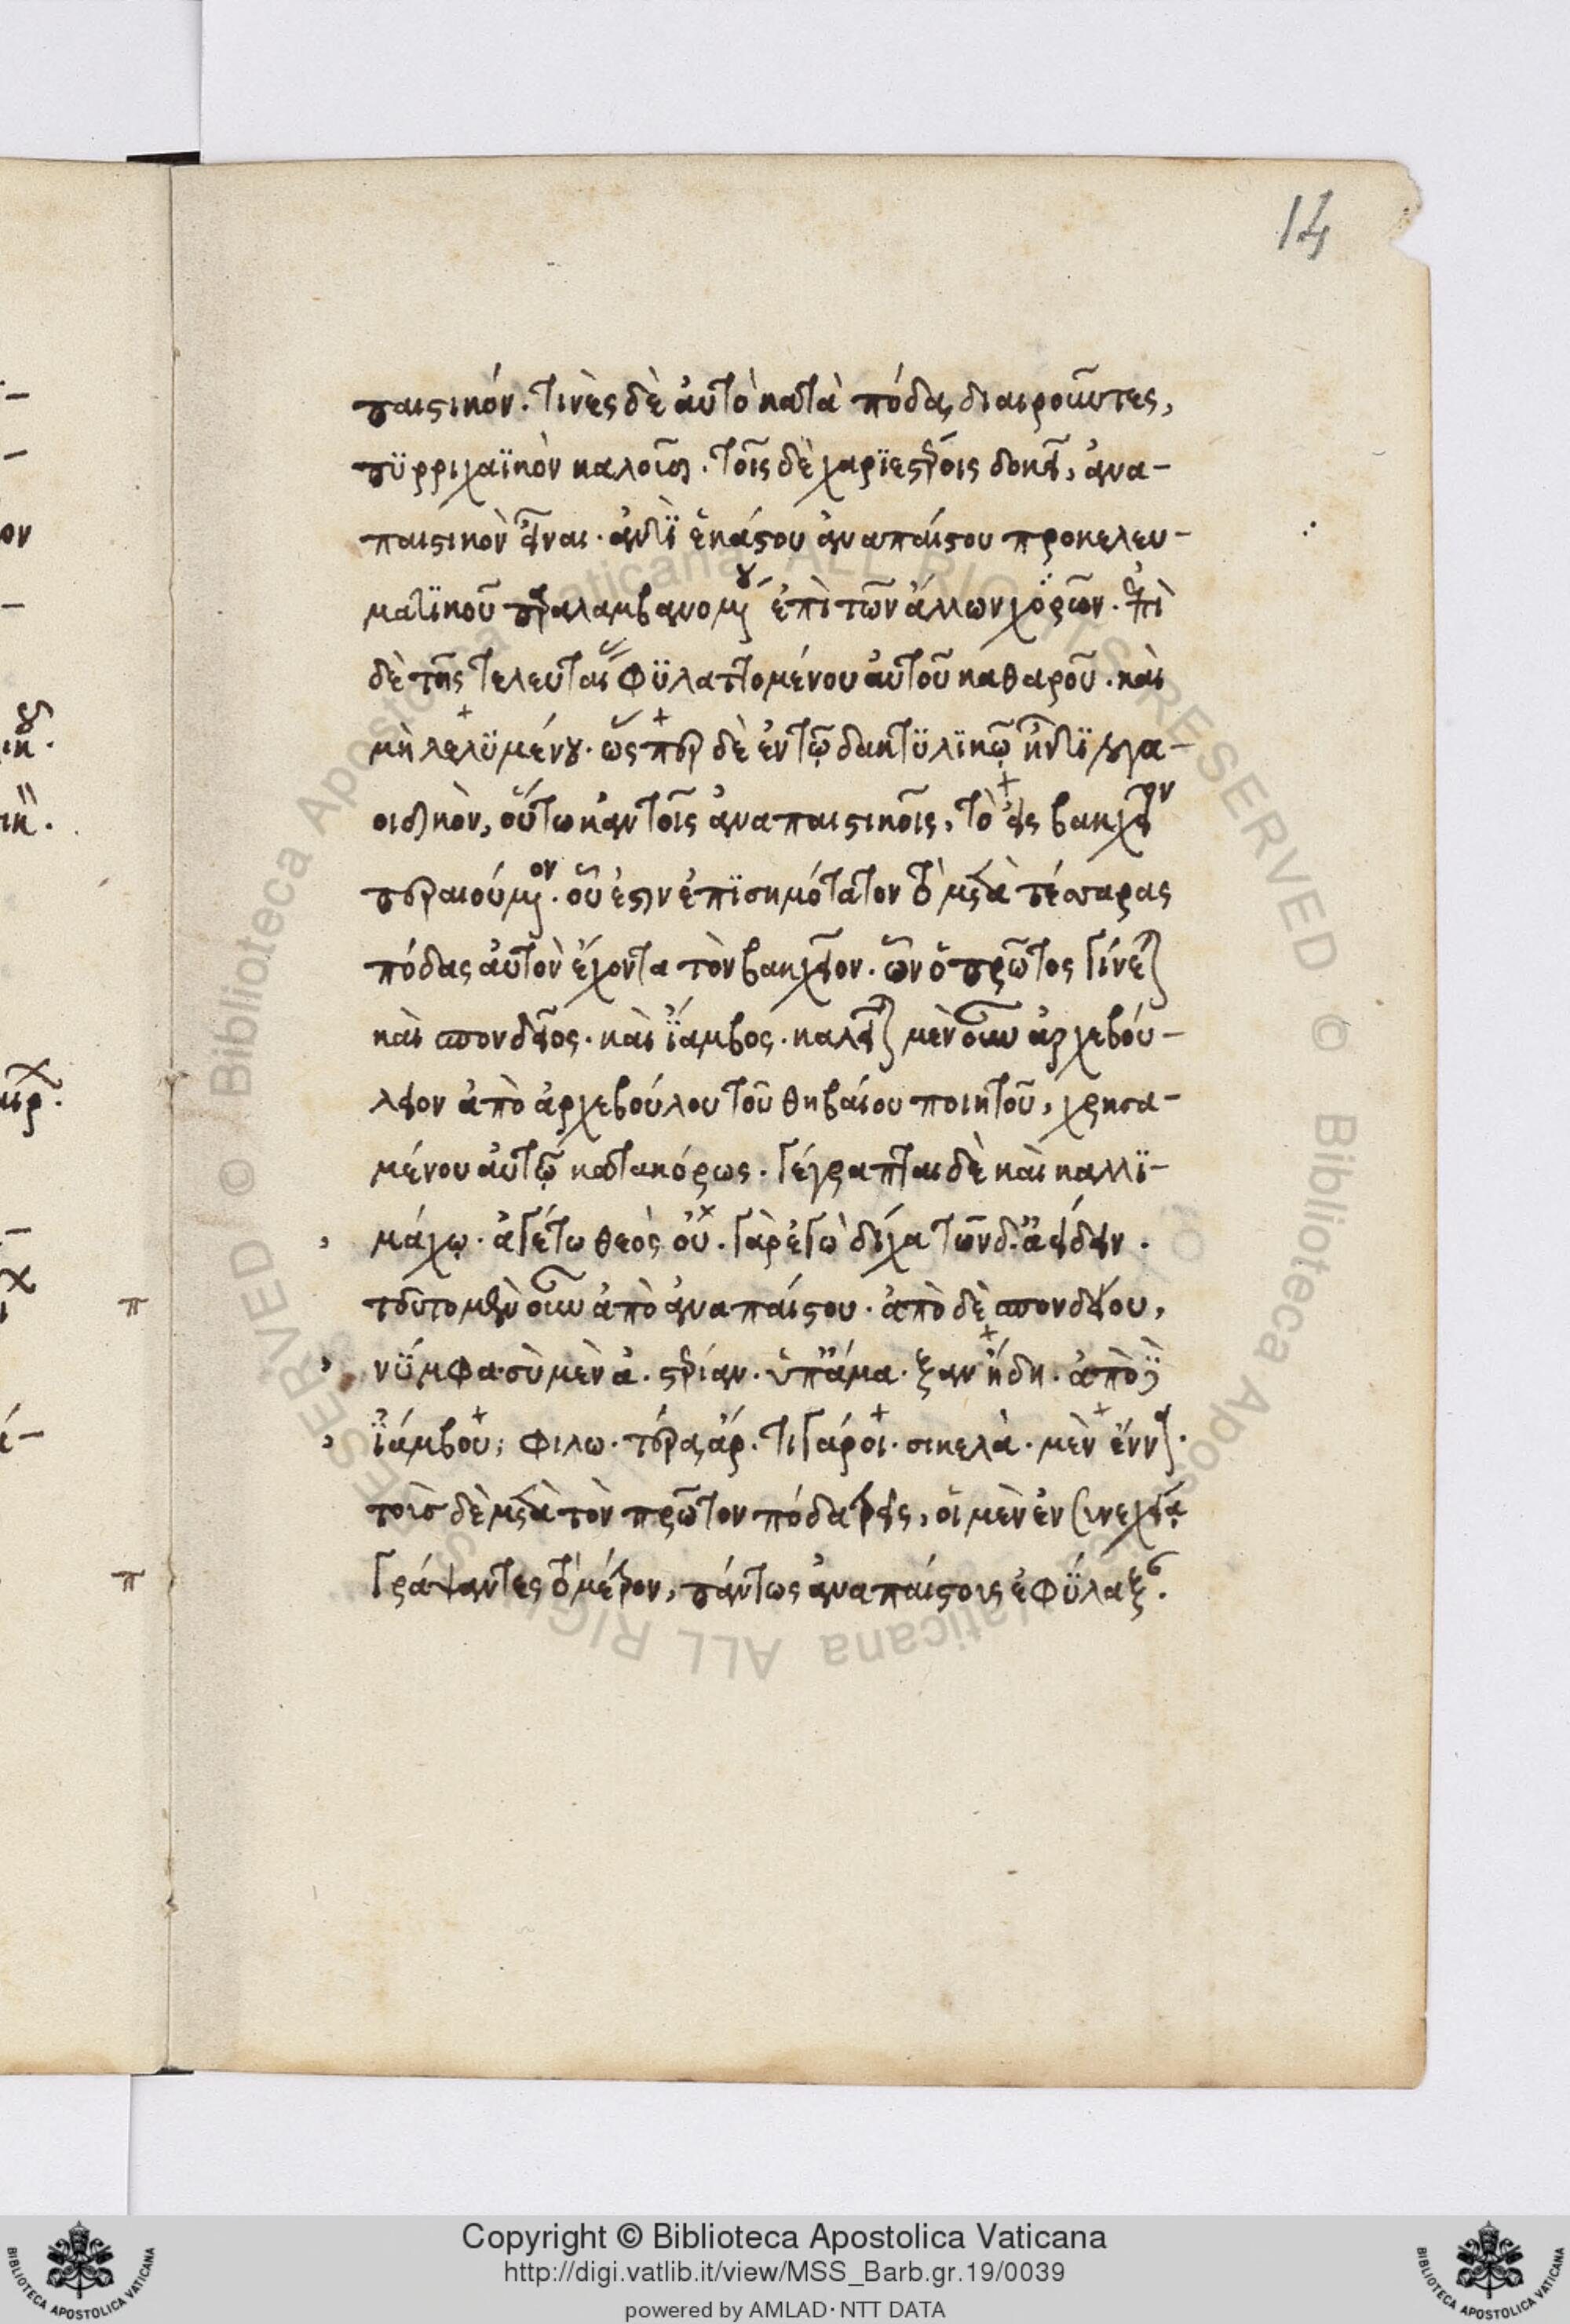 14
παιστικόν. τινὲς δὲ αὐτὸ κατὰ πόδα διαιροῦντες,
πυρριχαϊκὸν καλοῦσι. τοῖς δὲ χαριεστέροις δοκεῖ, ἀνα-
παιστικὸν εἶναι. ἀντὶ ἑκάστου ἀναπαίστου προκελευ-
ματικοῦ παραλαμβανομένου ἐπὶ τῶν ἄλλων χωρῶν. ἐπὶ
δὲ τῆς τελευταί φυλαττομένου αὐτοῦ καθαροῦ. καὶ
μὴ λελυμένου. ὥσπερ δὲ ἐν τῷ δακτυλικῷ ἦν τι λογα-
οιδικὸν, οὕτω κἀν τοῖς ἀναπαιστικοῖς, τὸ εἰς βακχεῖον
περαιούμενον. οὗ ἐστιν ἐπισημότατον τὸ μετὰ τέσσαρας
πόδας αὐτὸν ἔχοντα τὸν βακχεῖον. ὧν ὁ πρῶτος γίνεται
καὶ σπονδεῖος. καὶ ἴαμβος. καλεῖται μὲν οὖν ἀρχεβού-
λειον ἀπὸ ἀρχεβούλου τοῦ θηβαίου ποιητοῦ, χρησα-
μένου αὐτῷ κατακόρως. γέγραπται δὲ καὶ καλλι-
μάχῳ. ἀγέτω θεὸς οὐ. γὰρ ἐγὼ δίχα τῶνδ. ἀείδειν.
τοῦτο μὲν οὖν ἀπὸ ἀναπαίστου. ἀπὸ δὲ σπονδείου,
νύμφα. σὺ μὲν ἀ. στερίαν. ὑπ ἄμα. ξαν ἤδη. ἀπὸ δὲ
ἰάμβου; φιλω. τέρα ἄρ. τι γάρ οἱ. σικελὰ. μὲν ἔνν.
τοῖς δὲ μετὰ τὸν πρῶτον πόδα τρεῖς, οἱ μὲν ἐν συνεχείᾳ
γράψαντες τὸ μέτρον, πάντως ἀναπαίστοις ἐφύλαξ.
Copyright © Biblioteca Apostolica Vaticana
http://digi.vatlib.it/view/MSS_Barb.gr.19/0039
powered by AMLAD·NTT DATA